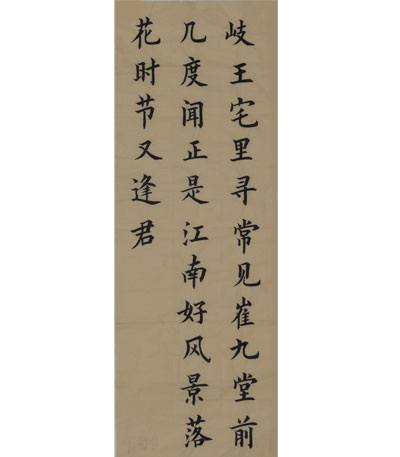 岐王宅里寻常见崔九堂前
几度闻正是江南好风景落
花时节又逢君